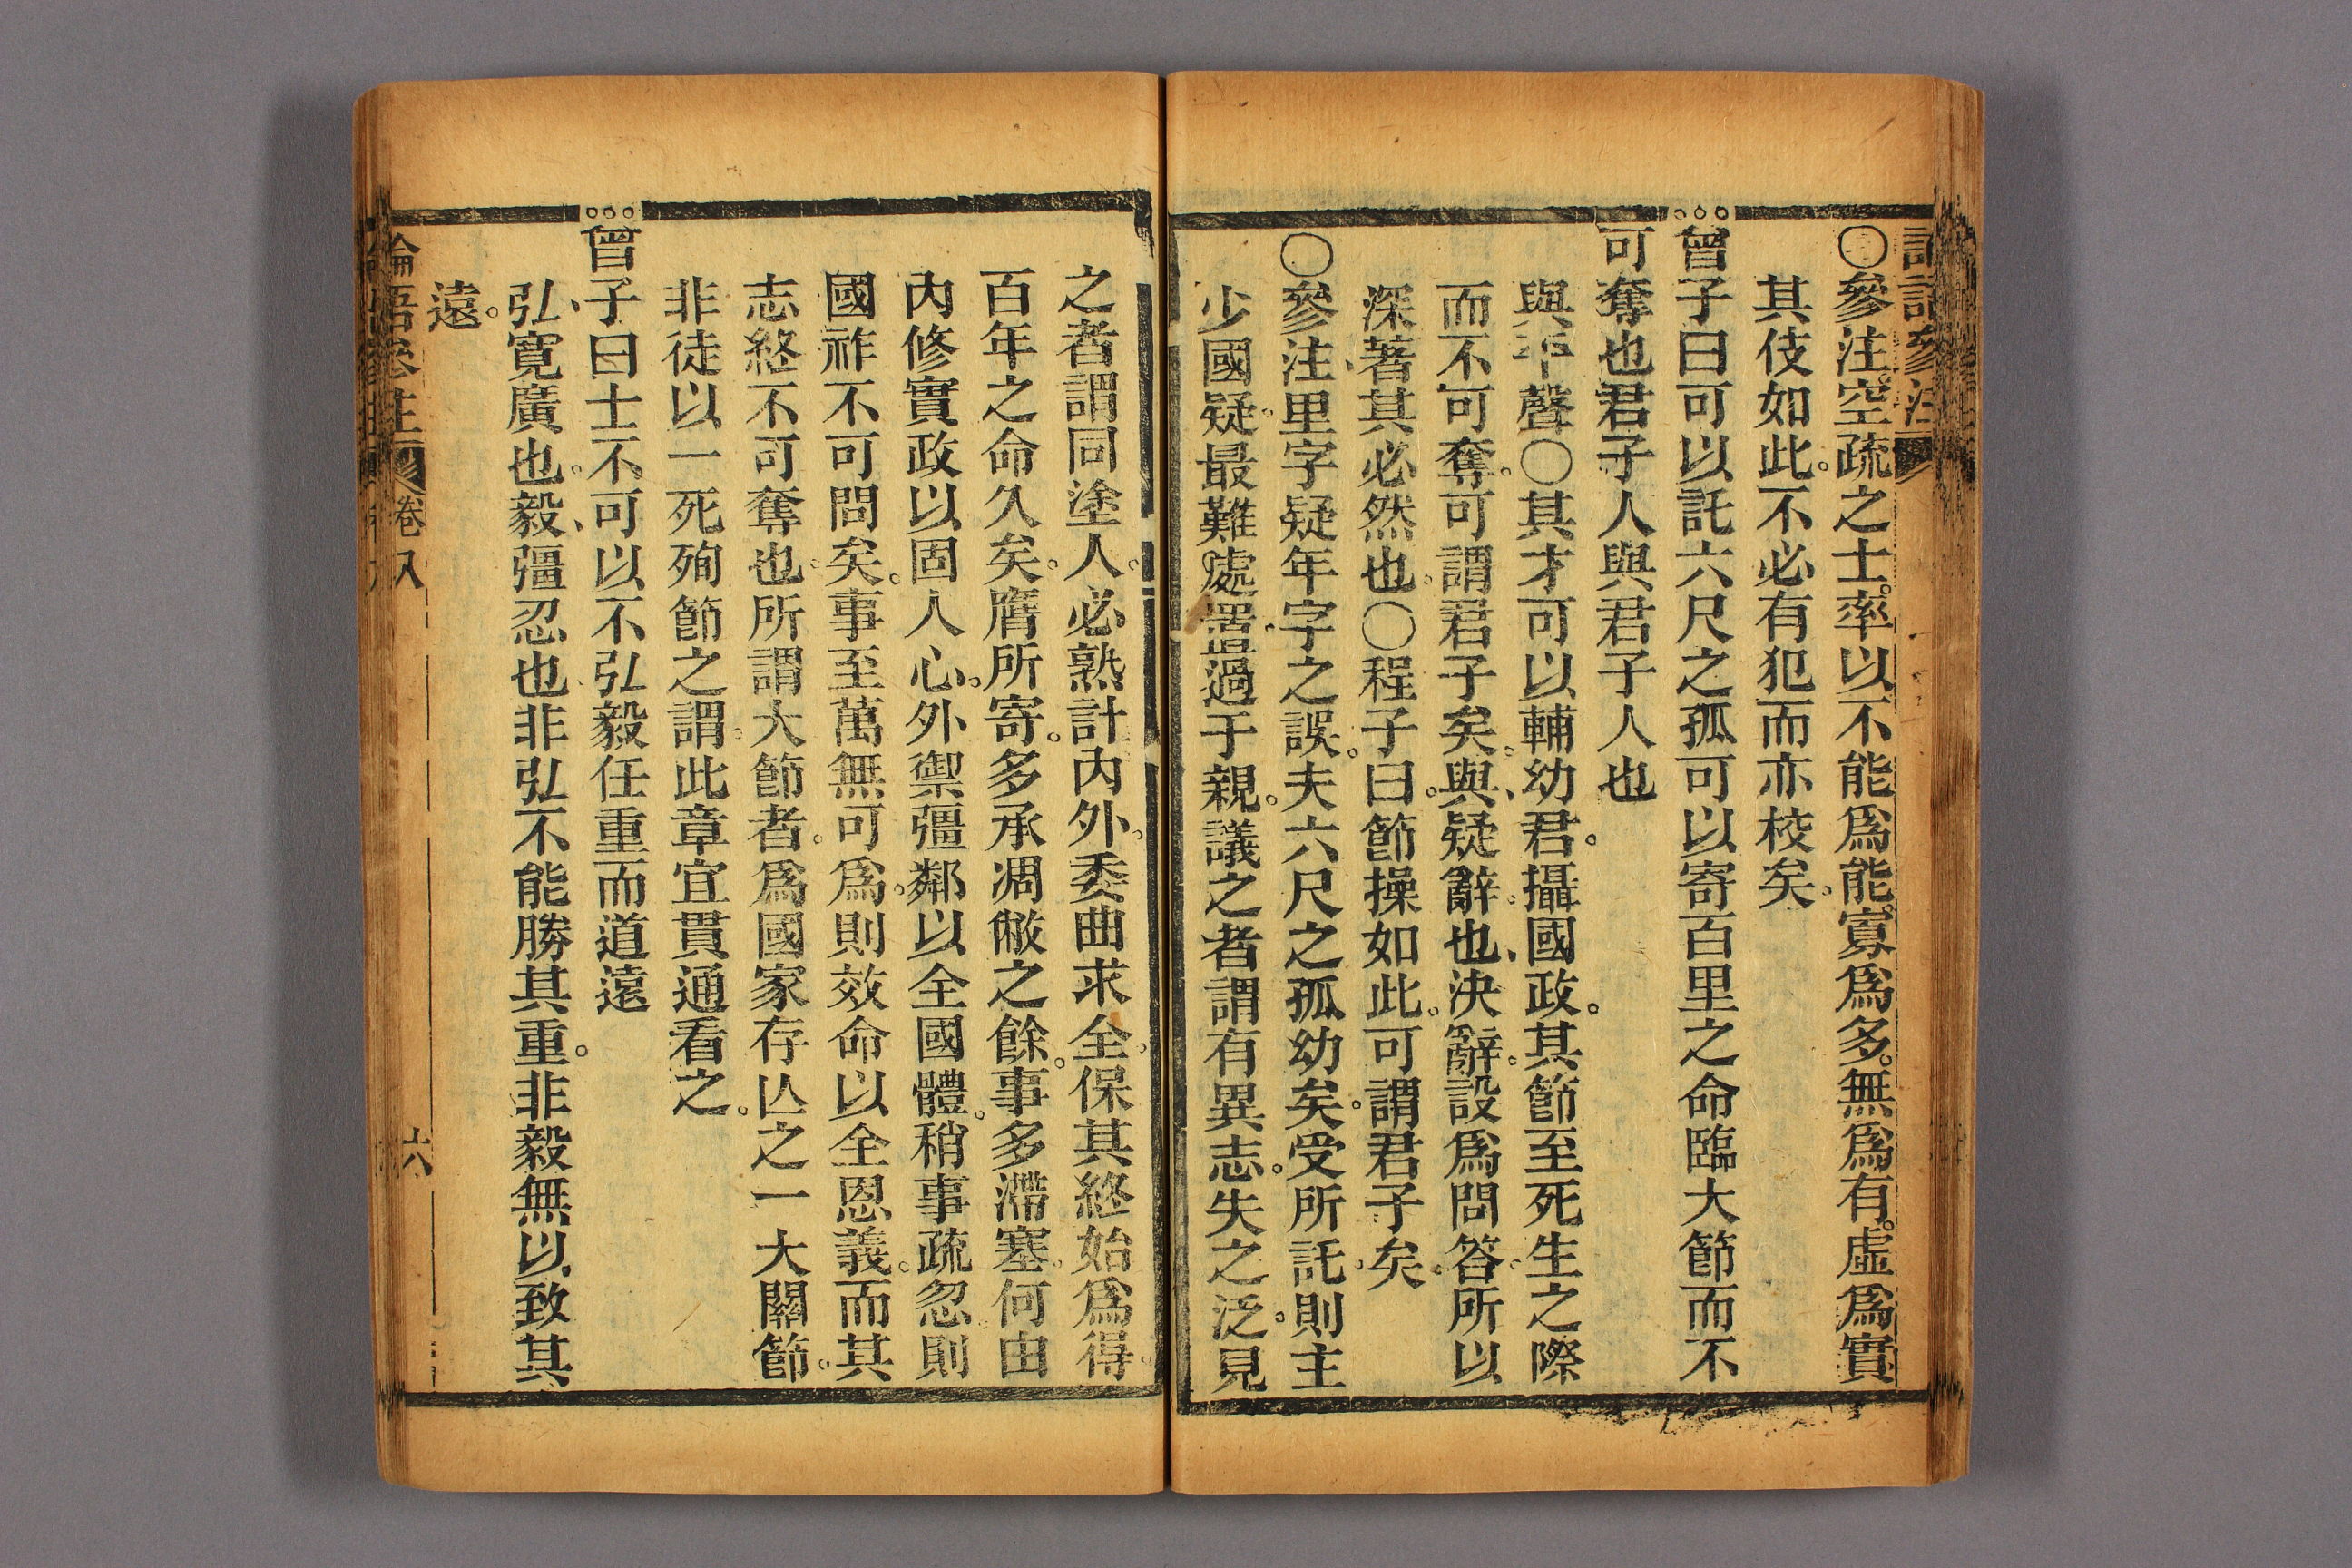 ○參注空疏之士。率以不能爲能。寡爲多。無爲有。虛爲實
其伎如此。不必有犯而亦校矣。
曾子曰可以託六尺之孤可以寄百里之命臨大節而不
可奪也君子人與君子人也
與平聲○其才可以輔幼君。攝國政。其節至死生之際
而不可奪。可謂君子矣。與、疑辭。也、決辭。設爲問答。所以
深著其必然也。○程子曰。節操如此。可謂君子矣。
○參注里字疑年字之誤。夫六尺之孤幼矣。受所託。則主
少國疑。最難處置。過于親。議之者謂有異志。失之泛。見
之者謂同塗人。必熟計內外。委曲求全。保其終始爲得。
百年之命久矣。膺所寄。多承凋敝之餘。事多滯塞。何由
內修實政以固人心。外禦彊鄰以全國體。稍事疏忽。則
國祚不可問矣。事至萬無可爲。則效命以全恩義。而其
志終不可奪也。所謂大節者。爲國家存亾之一大關節。
非徒以一死殉節之謂。此章宜貫通看之。
曾子曰士不可以不弘毅任重而道遠
弘、寬廣也。毅、彊忍也。非弘不能勝其重。非毅無以致其
遠。
論語參注
卷八
六